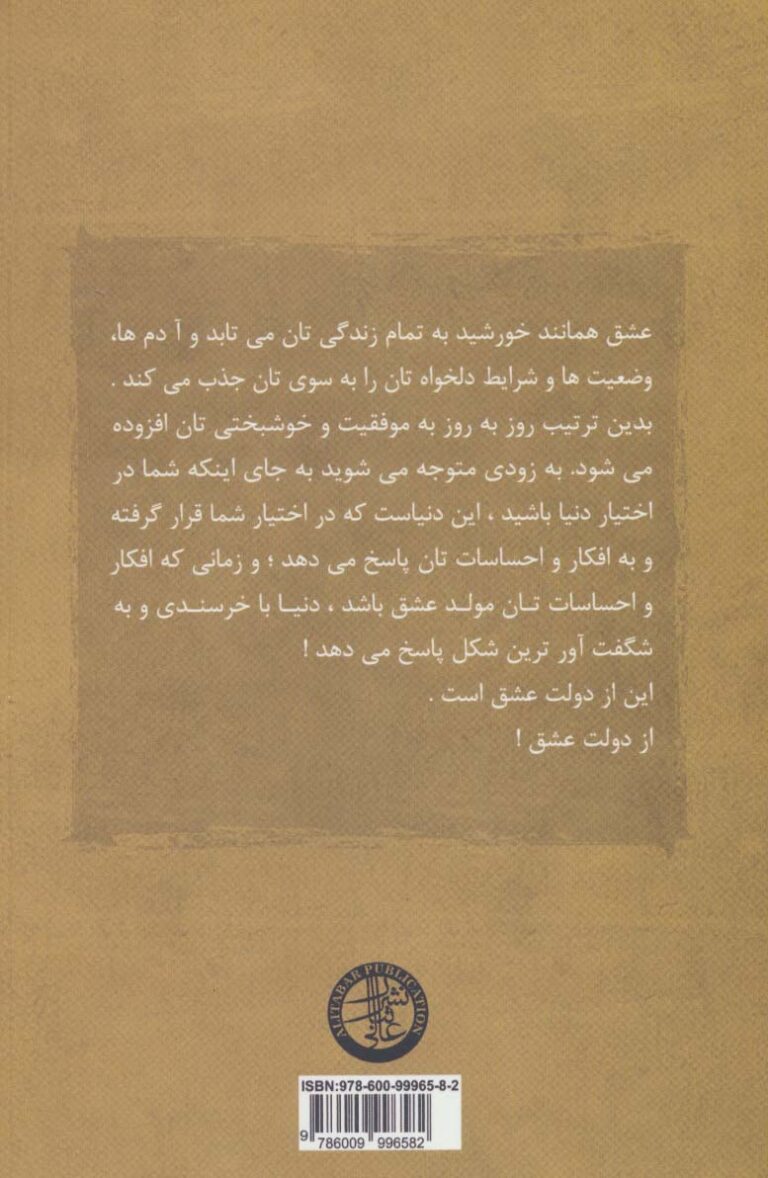 عشق همانند خورشید به تمام زندگی تان می تابد و آ دم ها،
وضعیت ها و شرایط دلخواه تان را به سوی تان جذب می کند .
بدین ترتیب روز به روز به موفقیت و خوشبختی تان افزوده
می شود. به زودی متوجه می شوید به جای اینکه شما در
اختیار دنیا باشید ، این دنیاست که در اختیار شما قرار گرفته
و به افکار و احساسات تان پاسخ می دهد ؛ و زمانی که افکار
و احساسات تـان مولـد عشق باشد ، دنیـا با خرسندی و به
شگفت آور ترین شکل پاسخ می دهد !
این از دولت عشق است .
از دولت عشق !
ALITABAR PUBLICATION
نشر
عالی تبار
ISBN:978-600-99965-8-2
9 786009 996582